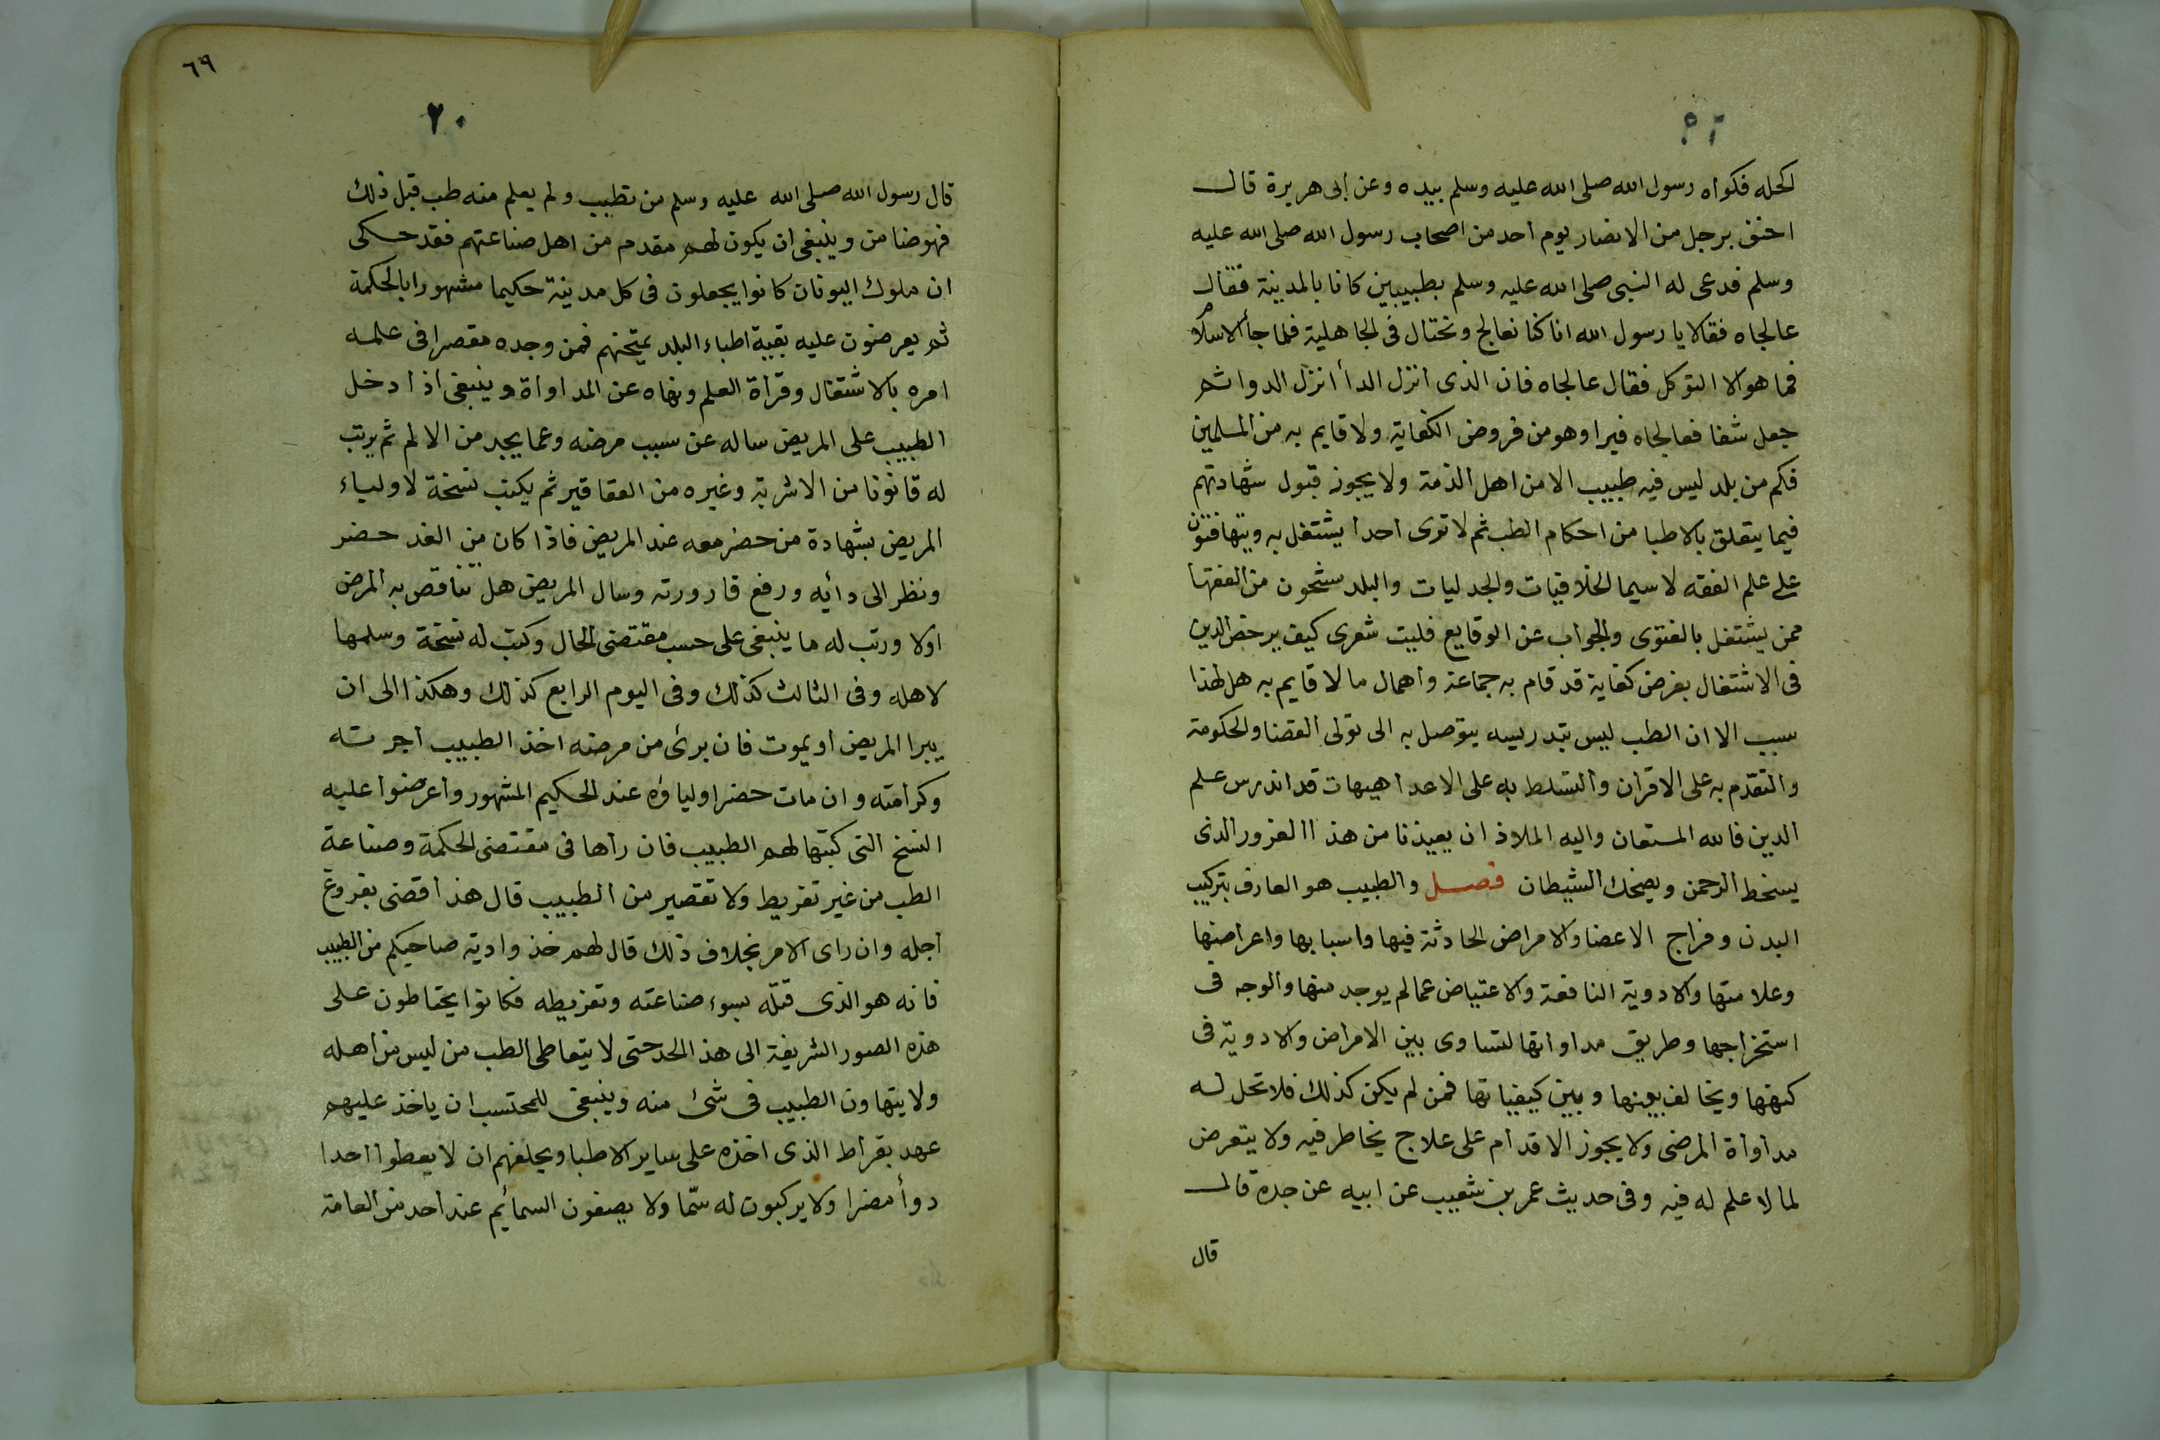 اكحله فكواه رسول الله صلى الله عليه وسلم بيده وعن ابى هريرة قال
احنق برجل من الانصار يوم احد من اصحاب رسول الله صلى الله عليه
وسلم فدعى له النبى صلى الله عليه وسلم بطبيبين كانا بالمدينة فقال
عالجاه فقالا يا رسول الله انا كنا نعالج ونحتال فى الجاهلية فلما جأ الاسلام
فما هو الا التوكل فقال عالجاه فان الذى انزل الدأ انزل الدوا ثم
جعل شفا فعالجاه فبرا وهو من فروض الكفاية ولا قايم به من المسلمين
فكم من بلد ليس فيه طبيب الا من اهل الذمة ولا يجوز قبول شهادتهم
فيما يتعلق بالاطبا من احكام الطب ثم لا ترى احدا يشتغل به ويتهافتون
على علم الفقه لا سيما الخلافيات والجدليات والبلد مشحون من الفقها
ممن يشتغل بالفتوى والجواب عن الوقايع فليت شعرى كيف يرخص الدين
فى الاشتغال بفرض كفاية قد قام به جماعة واهمال ما لا قايم به هل لهذا
سبب الا ان الطب ليس بتدريسه يتوصل به الى تولى القضا والحكومة
والتقدم به على الاقران والتسلط به على الاعدا هيهات قد اندرس علم
الدين فالله المستعان واليه الملاذ ان يعيذنا من هذا الغرور الذى
يسخط الرحمن ويضحك الشيطان فصل والطبيب هو العارف بتركيب
البدن ومزاج الاعضا والامراض الحادثة فيها واسبابها واعراضها
وعلامتها والادوية النافعة والاعتياض عما لم يوجد منها والوجه فى
استخراجها وطريق مداواتها لتساوى بين الامراض والادوية فى
كمتها ويخالف بينها وبين كيفياتها فمن لم يكن كذلك فلا تحل له
مداواة المرضى ولا يجوز الاقدام على علاج يخاطر فيه ولا يتعرض
لما لا علم له فيه وفى حديث عمر بن شعيب عن ابيه عن جده قال
قال
٦٩
٢٠
قال رسول الله صلى الله عليه وسلم من تطبب ولم يعلم منه طب قبل ذلك
فهو ضامن وينبغى ان يكون لهم مقدم من اهل صناعتهم فقد حكى
ان ملوك اليونان كانوا يجعلون فى كل مدينة حكيما مشهورا بالحكمة
ثم يعرضون عليه بقية اطباء البلد يمتحنهم فمن وجده مقصرا فى علمه
امره بالاشتغال وقرأة العلم ونهاه عن المداواة وينبغى اذا دخل
الطبيب على المريض ساله عن سبب مرضه وعما يجد من الالم ثم يرتب
له قانونا من الاشربة وغيره من العقاقير ثم يكتب نسخة لاولياء
المريض بشهادة من حضر معه عند المريض فاذا كان من الغد حضر
ونظر الى دأيه ورفع قارورته وسال المريض هل تناقص به المرض
اولا ورتب له ما ينبغى على حسب مقتضى الحال وكتب له نسخة وسلمها
لاهله وفى الثالث كذلك وفى اليوم الرابع كذلك وهكذا الى ان
يبرا المريض او يموت فان برئ من مرضه اخذ الطبيب اجرته
وكرامته وان مات حضر اولياؤه عند الحكيم المشهور واعرضوا عليه
النسخ التى كتبها لهم الطبيب فان رأها فى مقتضى الحكمة وصناعة
الطب من غير تفريط ولا تقصير من الطبيب قال هذا قضى بفروغ
اجله وان راى الامر بخلاف ذلك قال لهم خذوا دية صاحبكم من الطبيب
فانه هو الذى قتله بسوء صناعته وتفريطه فكانوا يحتاطون على
هذه الصور الشريفة الى هذ الحد حتى لا يتعاطى الطب من ليس من اهله
ولا يتهاون الطبيب فى شئ منه وينبغى للمحتسب ان ياخذ عليهم
عهد بقراط الذى اخذه على ساير الاطبا ويحلفهم ان لا يعطوا احدا
دوأ مضرا ولا يركبون له سما ولا يصفون السمائم عند احد من العامة